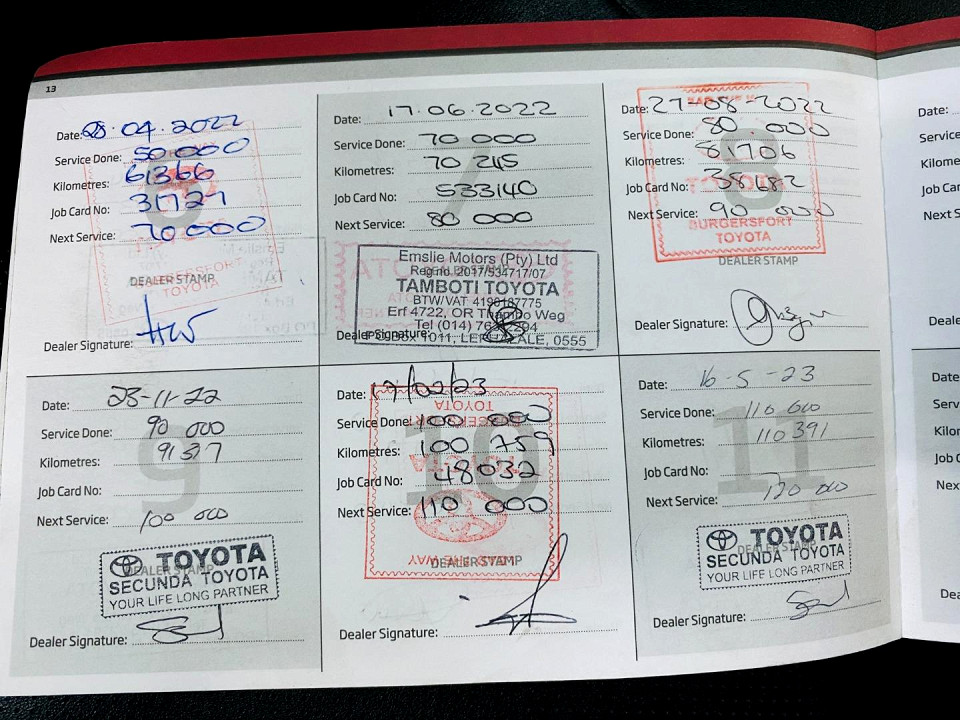 13
Date: 28.04.2022
Service Done: 50.000
Kilometres: 61366
Job Card No: 31727
Next Service: 70000
6
BURGERSFORT
TOYOTA
DEALER STAMP
Dealer Signature:
Date: 17.06.2022
Service Done: 70 000
Kilometres: 70 245
Job Card No: 533140
Next Service: 80 000
7
Emslie Motors (Pty) Ltd
Reg no. 2017/534717/07
TAMBOTI TOYOTA
BTW/VAT 4190187775
Erf 4722, OR Thambo Weg
Tel (014)
P O Box 1011, LEPHALALE, 0555
Dealer Signature:
Date: 27-08-2022
Service Done: 80.000
Kilometres: 81706
Job Card No: 38682
Next Service: 90 000
8
BURGERSFORT
TOYOTA
DEALER STAMP
Dealer Signature:
Date: 23-11-22
Service Done: 90 000
Kilometres: 91327
Job Card No:
Next Service: 100 000
9
TOYOTA
SECUNDA TOYOTA
YOUR LIFE LONG PARTNER
DEALER STAMP
Dealer Signature:
Date: 17/02/23
Service Done: 100 000
Kilometres: 100 759
Job Card No: 48032
Next Service: 110 000
10
TOYOTA
DEALER STAMP
Dealer Signature:
Date: 16-5-23
Service Done: 110 000
Kilometres: 110 391
Job Card No:
Next Service: 120 000
11
TOYOTA
SECUNDA TOYOTA
YOUR LIFE LONG PARTNER
DEALER STAMP
Dealer Signature:
Date:
Service
Kilome
Job Ca
Next S
Deale
Date:
Serv
Kilor
Job C
Nex
Dea